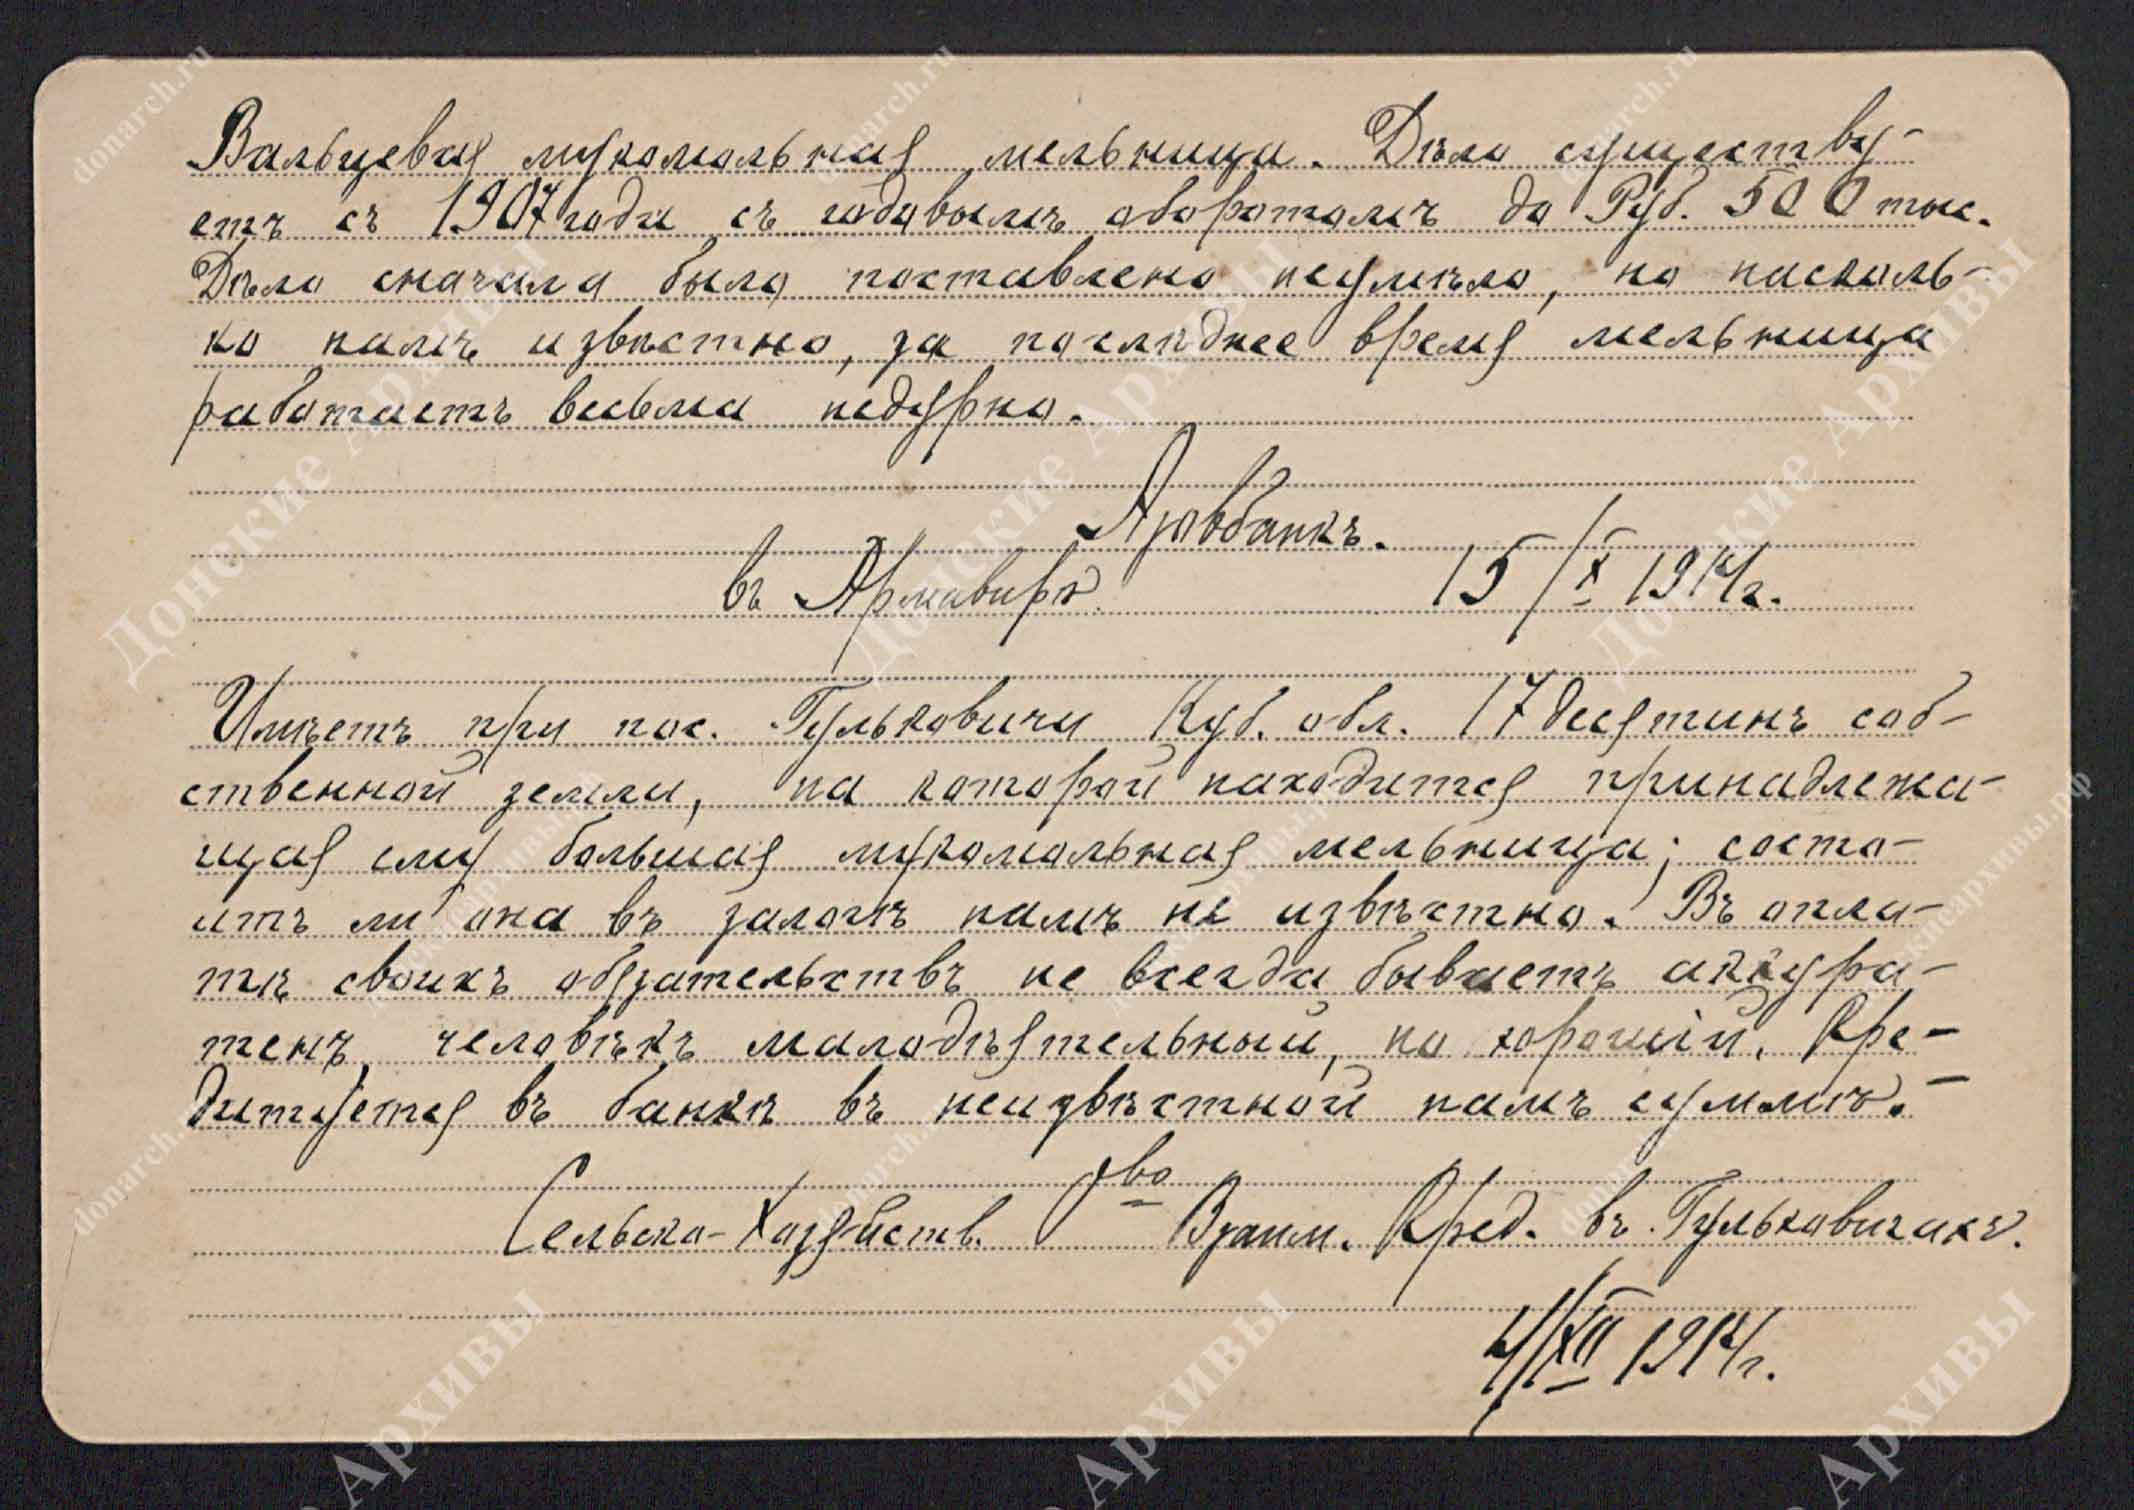 Вальцевая мукомольная мельница. Дѣло существу-
етъ съ 1907 года съ годовымъ оборотомъ до Руб. 500 тыс.
Дѣло сначала было поставлено неумѣло, но насколь-
ко намъ извѣстно, за послѣднее время мельница
работаетъ весьма недурно.
Азовбанкъ.
въ Армавирѣ. 15/X 1914 г.
Имѣетъ при пос. Гулькевичи Куб. обл. 17 десятинъ соб-
ственной земли, на которой находится принадлежа-
щая ему большая мукомольная мельница; состо-
итъ ли она въ залогѣ намъ не извѣстно. Въ опла-
тѣ своихъ обязательствъ не всегда бываетъ аккура-
тенъ, человѣкъ малодѣятельный, но хорошій. Кре-
дитуется въ банкѣ въ неизвѣстной намъ суммѣ.-
Сельско-Хозяйств. О-во Взаим. Кред. въ Гулькевичахъ.
4/XII 1914 г.
donarch.ru
donarch.ru
donarch.ru
Донские Архивы
Донские Архивы
Донские Архивы
донскиеархивы.рф
донскиеархивы.рф
донскиеархивы.рф
donarch.ru
donarch.ru
donarch.ru
Архивы
Архивы
Архивы